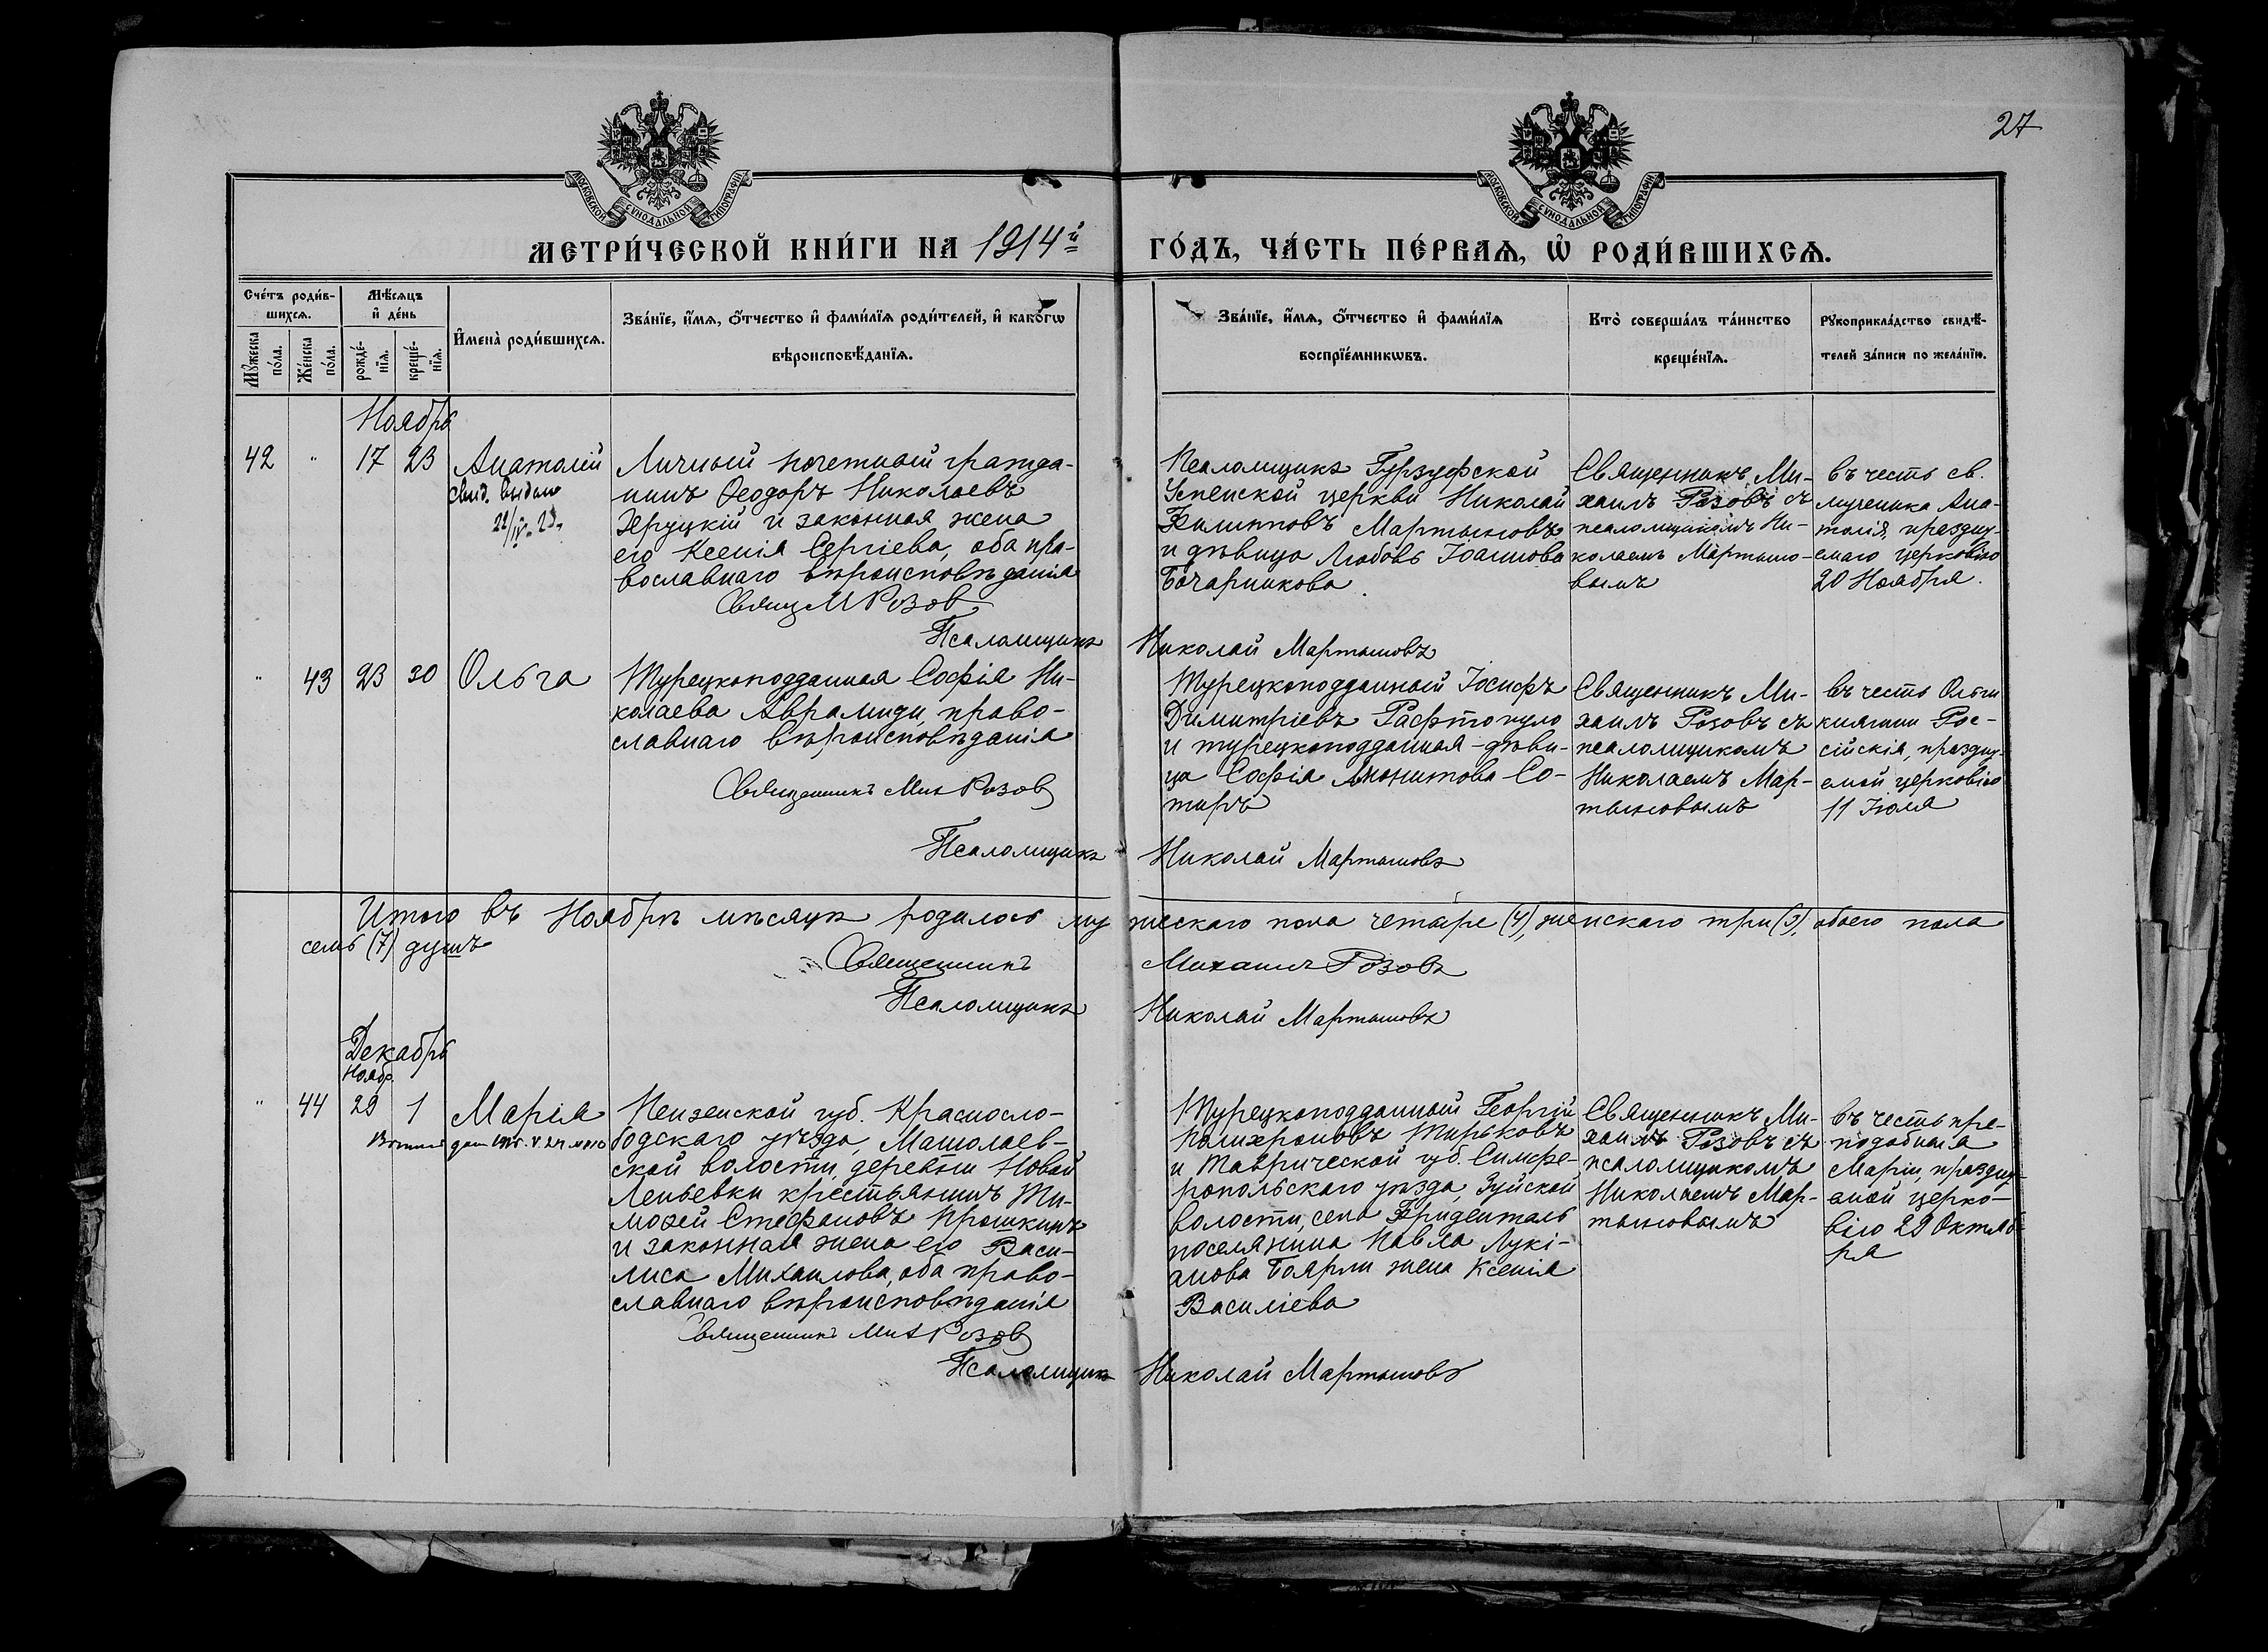 27
МОСКОВСКОЙ СѴНОДАЛЬНОЙ ТИПОГРАФІИ
МОСКОВСКОЙ СѴНОДАЛЬНОЙ ТИПОГРАФІИ
МЕТРИ́ЧЕСКОЙ КНИ́ГИ НА 1914й ГО́ДЪ, ЧА́СТЬ ПЕ́РВАѦ, Ѡ҆ РОДИ́ВШИХСѦ.
Сче́тъ роди́в-
шихсѧ.
Мꙋ́жеска
по́ла.
Же́нска
по́ла.
Мѣ́сѧцъ
и҆ де́нь
рожде́-
нїѧ.
креще́-
нїѧ.
И҆мена̀ роди́вшихсѧ.
Зва́нїе, и҆́мѧ, ѻ҆́тчество и҆ фами́лїѧ роди́телей, и҆ како́гѡ
вѣроисповѣ́данїѧ.
Зва́нїе, и҆́мѧ, ѻ҆́тчество и҆ фами́лїѧ
воспрїе́мникѡвъ.
Кто̀ соверша́лъ та́инство
креще́нїѧ.
Рꙋкоприкла́дство свидѣ́-
телей за́писи по жела́нїю.
Ноябрь
42 " 17 23 Анатолій
свид. выдано
22/IV-23.
Личный почетный гражда-
нинъ Ѳеодоръ Николаевъ
Херуцкій и законная жена
его Ксенія Сергіева, оба пра-
вославнаго вѣроисповѣданія
Свящ М Розов
Псаломщикъ Гурзуфской
Успенской церкви Николай
Филипповъ Мартыновъ
и дѣвица Любовь Іоаннова
Бочарникова.
Священникъ Ми-
хаилъ Розовъ съ
псаломщикомъ Ни-
колаемъ Мартыно-
вымъ
въ честь св.
мученика Ана-
толія, праздну-
емаго церковію
20 Ноября.
Псаломщикъ Николай Мартыновъ
" 43 23 30 Ольга
Турецкоподданная Софія Ни-
колаева Аврамиди, право-
славнаго вѣроисповѣданія
Священникъ Мих Розов
Турецкоподданный Іосифъ
Димитріевъ Рафтопуло
и турецкоподданная-дѣви-
ца Софія Со-
тиръ
Священникъ Ми-
хаилъ Розовъ съ
псаломщикомъ
Николаемъ Мар-
тыновымъ
въ честь Ольги
княгини Рос-
сійскія, праздну-
емой церковію
11 Іюля
Псаломщикъ Николай Мартыновъ
Итого въ Ноябрѣ мѣсяцѣ родилось мужескаго пола четыре (4), женскаго три (3), обоего пола
семь (7) душъ
Священникъ Михаилъ Розовъ
Псаломщикъ Николай Мартыновъ
Декабрь
Нояб.
" 44 29 1 Марія
Пензенской губ. Краснослo-
бодскаго уѣзда,
ской волости, деревни Новой
крестьянинъ Ти-
моѳей Стефановъ Прошкинъ
и законная жена его Васи-
лиса Михаилова, оба право-
славнаго вѣроисповѣданія
Священникъ Мих Розов
Турецкоподданный Георгій
Полихроновъ Тирьковъ
и Таврической губ. Симфе-
ропольскаго уѣзда, Зуйской
волости, села Фриденталь
поселянина Павла Лукі-
анова жена Ксенія
Василіева
Священникъ Ми-
хаилъ Розовъ съ
псаломщикомъ
Николаемъ Мар-
тыновымъ
въ честь пре-
подобныя
Маріи, праздну-
емой церко-
вію 29 Октяб-
ря
Псаломщикъ Николай Мартыновъ